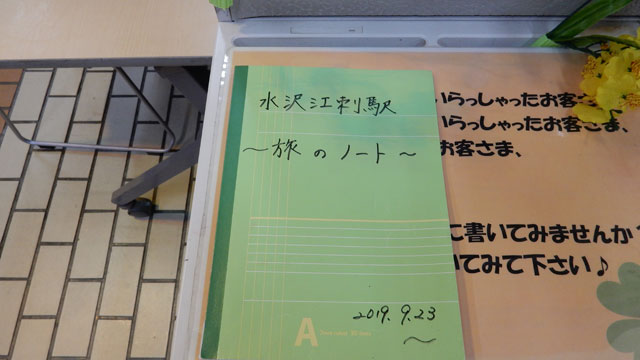 水沢江刺駅
～旅のノート～
2019.9.23
～
A
いらっしゃったお客さ
いらっしゃったお客さま、
お客さま、
て書いてみませんか?
いてみて下さい♪